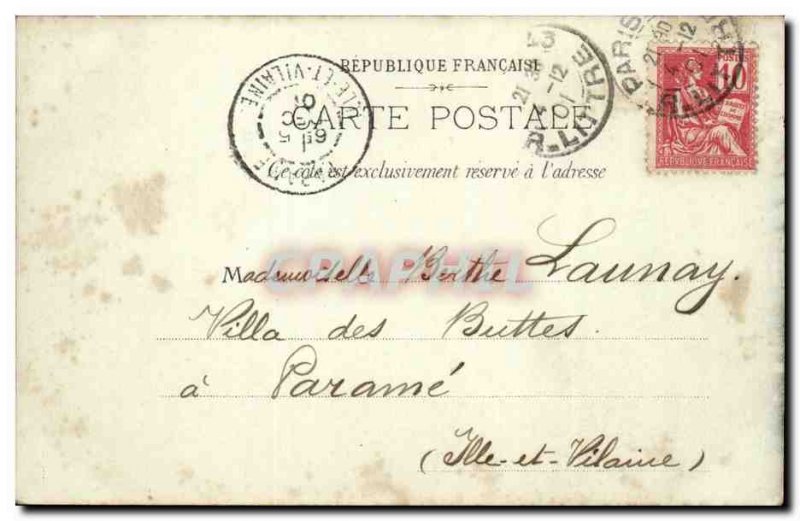 RÉPUBLIQUE FRANÇAISE
CARTE POSTALE
Ce côté est exclusivement réservé à l'adresse
Mademoiselle Berthe Launay.
Villa des Buttes.
à Paramé
(Ille-et-Vilaine)
ILLE-ET-VILAINE
PARAMÉ
PARIS
R. LITTRE
POSTES
10
RÉPUBLIQUE FRANÇAISE
CPAPHIL